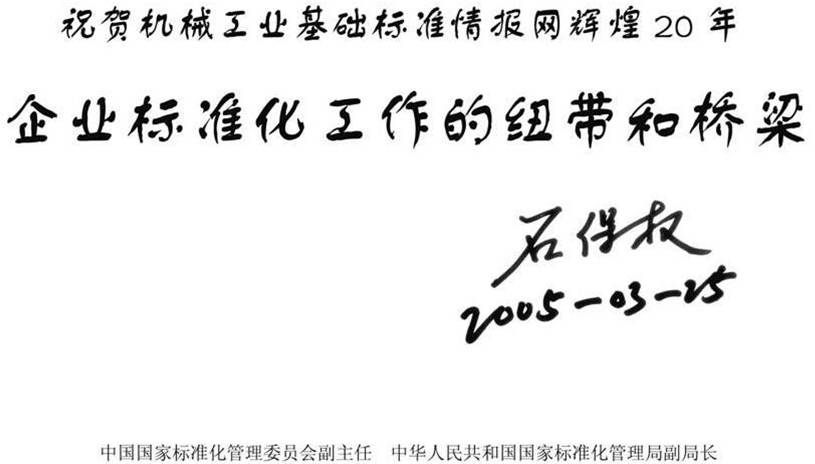 祝贺机械工业基础标准情报网辉煌20年
企业标准化工作的纽带和桥梁
石保权
2005-03-25
中国国家标准化管理委员会副主任 中华人民共和国国家标准化管理局副局长